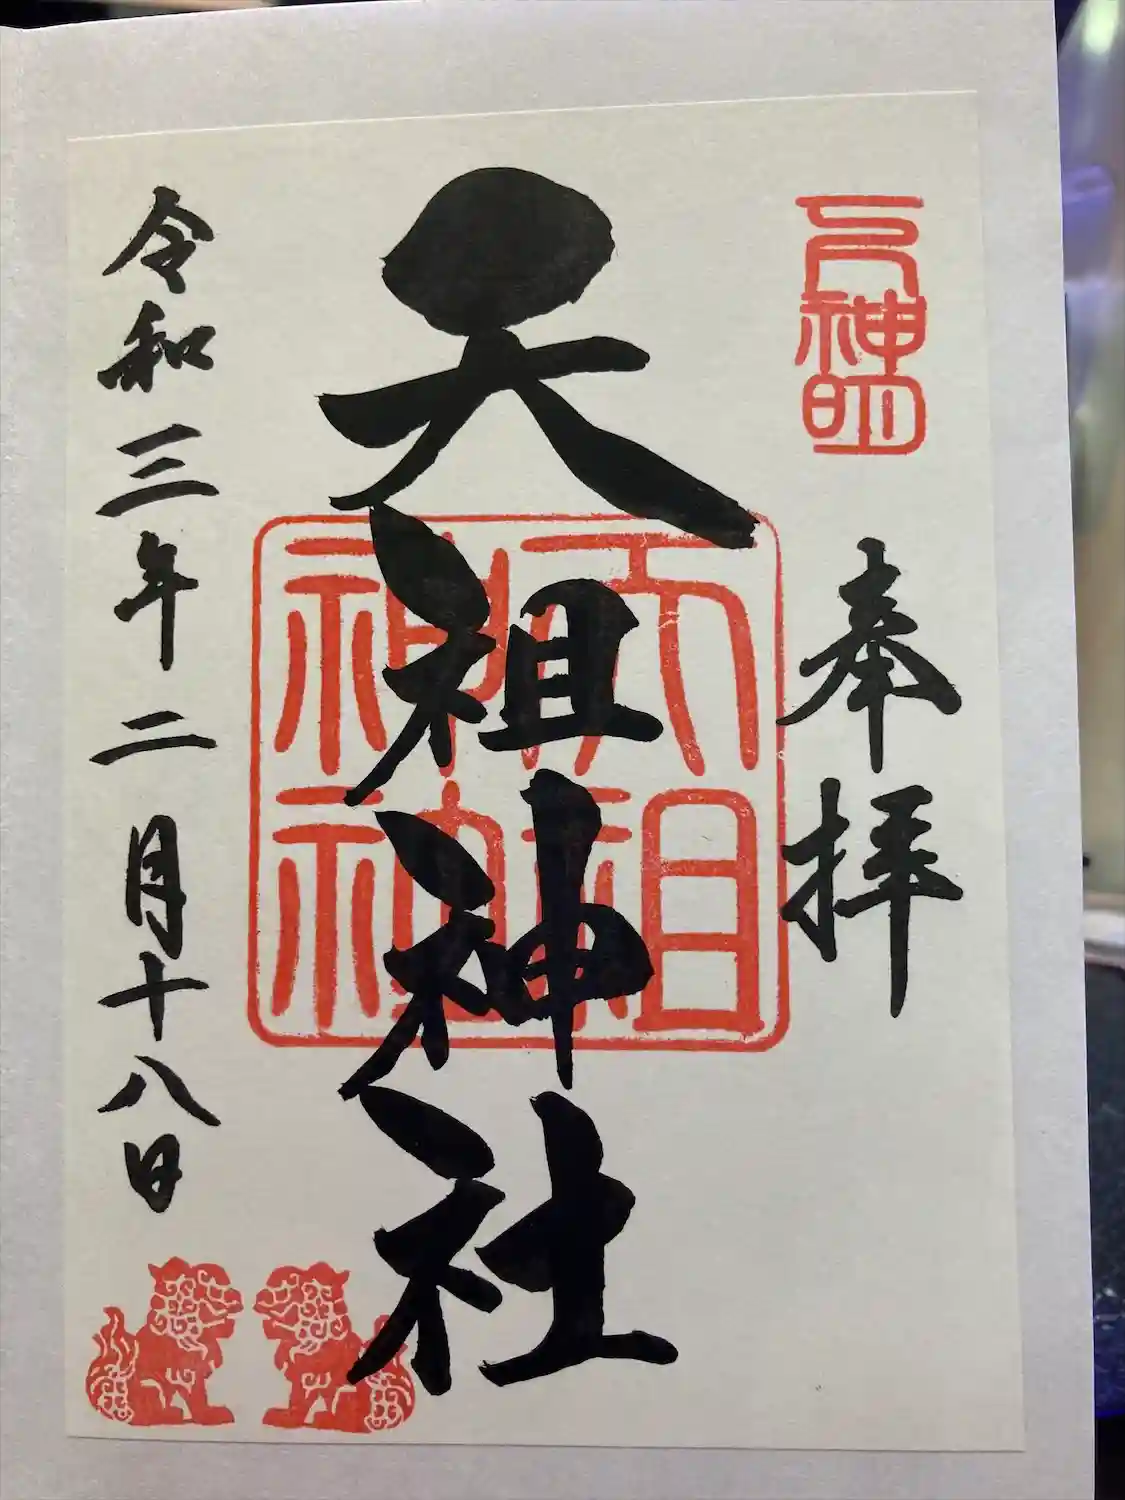 下神明
奉拝
天祖神社
天祖
神社
令和三年二月十八日